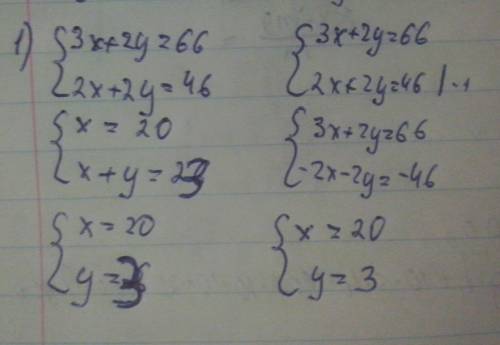 1) {3x+2y=66
{2x+2y=46
{x=20
{x+y=23
{x=20
{y=3
{3x+2y=66
{2x+2y=46 |·-1
{3x+2y=66
{-2x-2y=-46
{x=20
{y=3